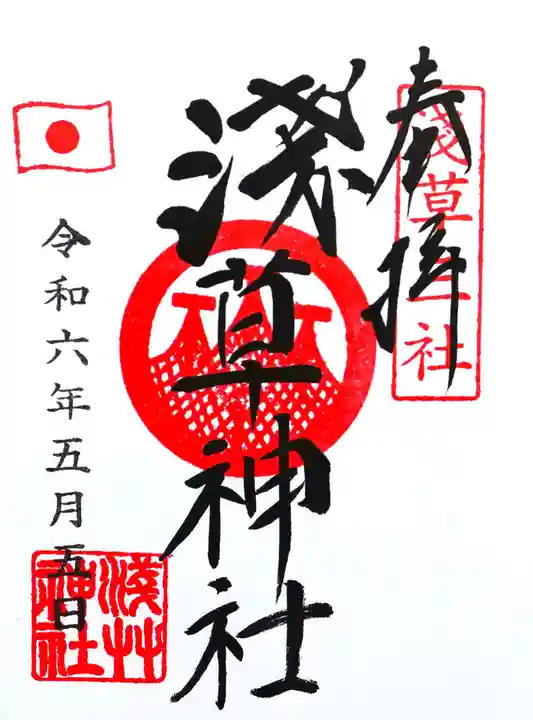 奉拝
淺草三社
淺草神社
令和六年五月五日
淺草
神社